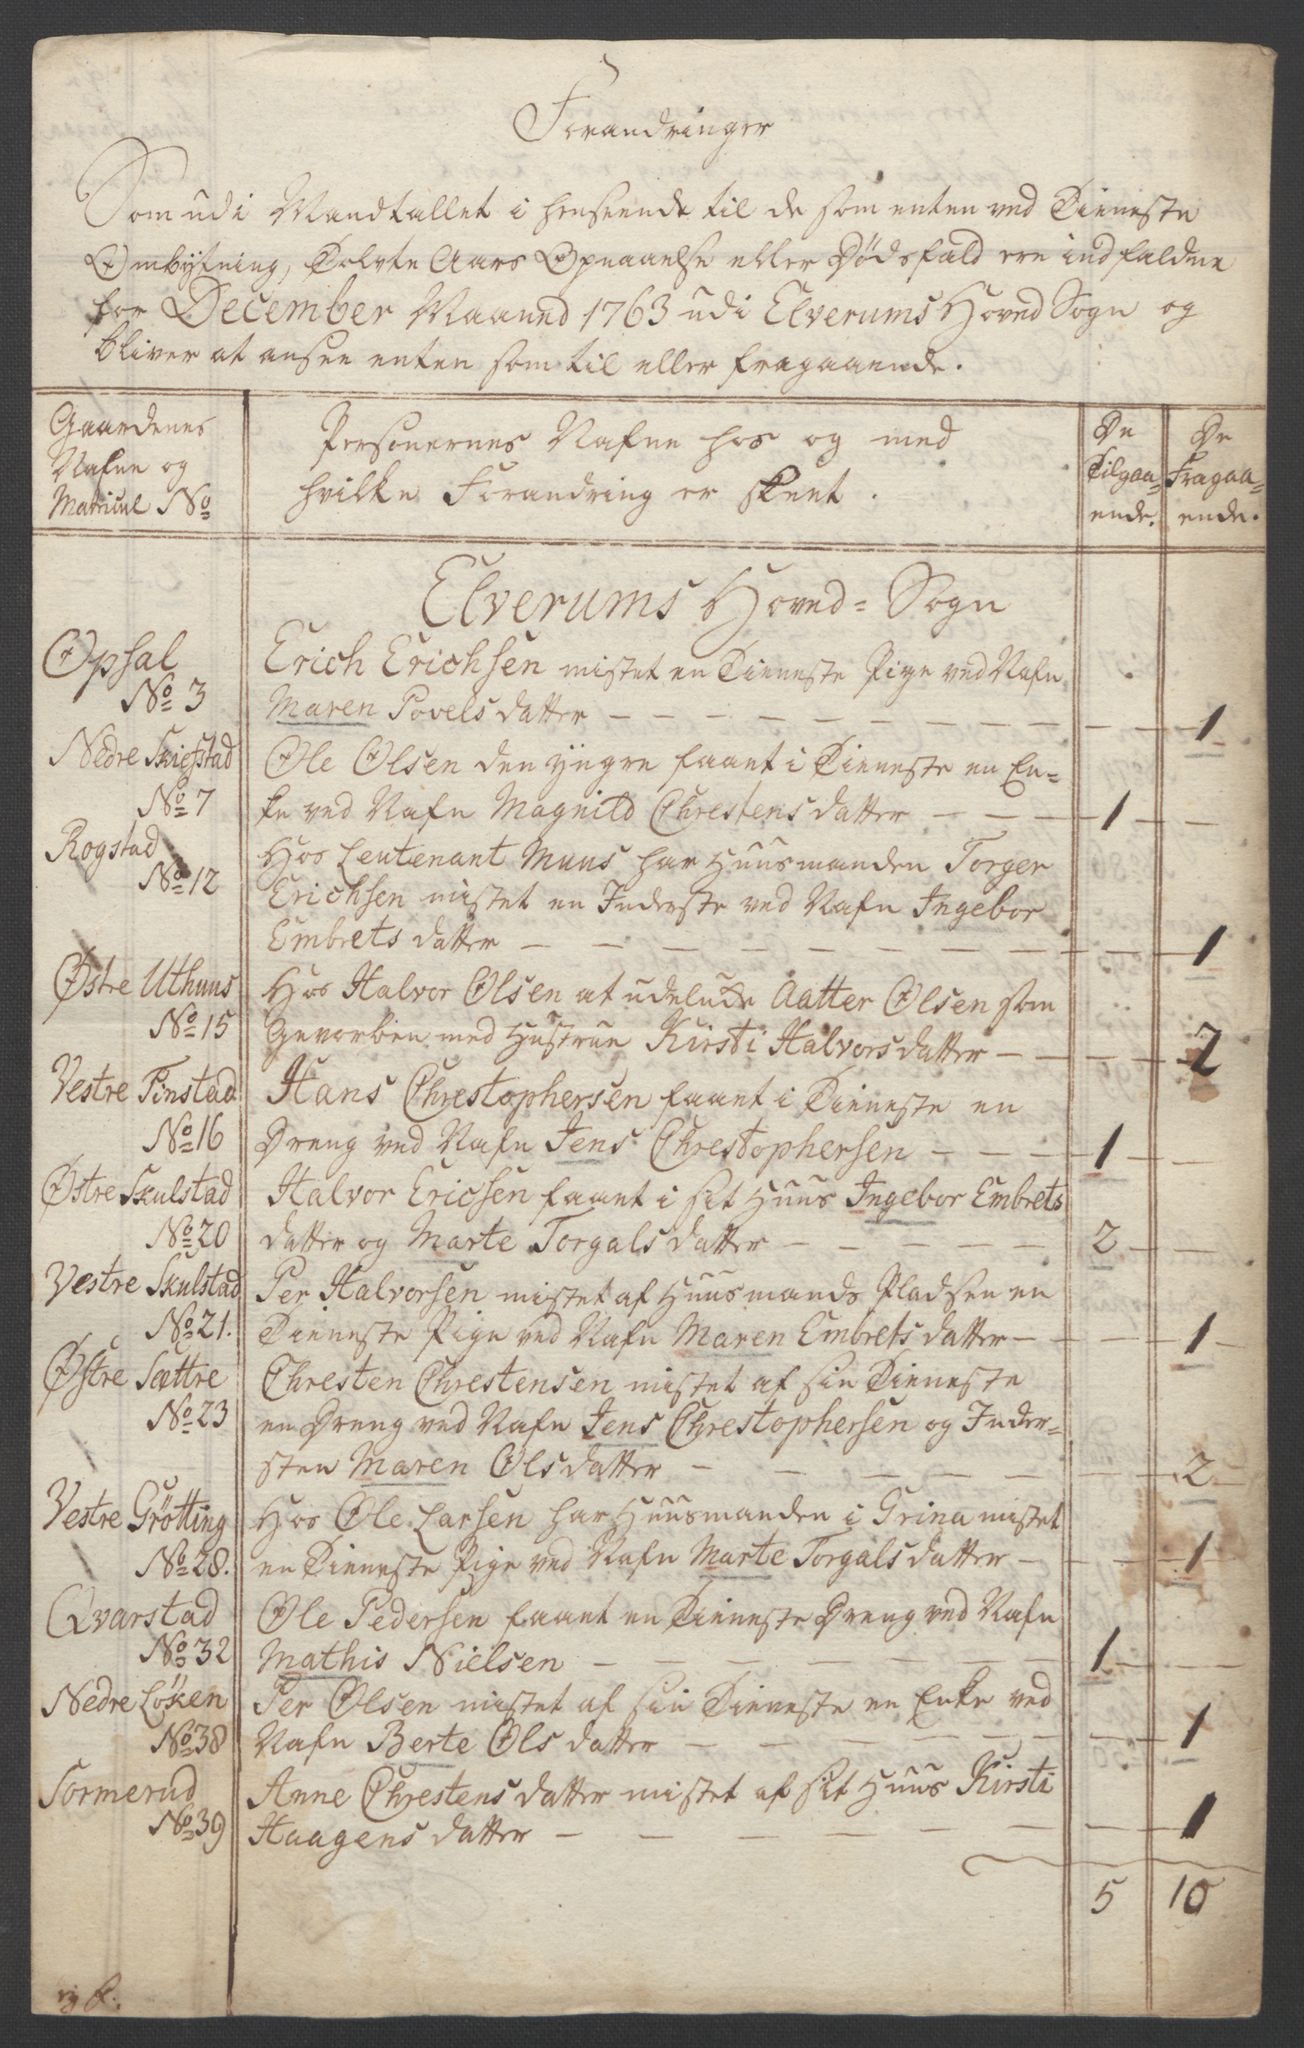 Forandringer
Som udi Mandtallet i henseende til de som enten ved Tieneste
Ombytning, Tolvte Aars Opnaaelse eller Dødsfald ere indfaldne
for December Maaned 1763 udi Elverums Hoved Sogn og
bliver at ansee enten som til eller fragaaende.
Gaardenes
Nafne og
Matricul No
Personernes Nafne hos og med
hvilke Forandring er skeet.
De
Tilgaa-
ende.
De
Fragaa-
ende.
Elverums Hoved=Sogn
Opsal Erich Erichsen mistet en Tieneste Pige ved Nafn
No 3 Maren Povels datter — 1
Nedre Skiefstad Ole Olsen den yngre faaet i Tieneste en En-
No 7 ke ved Nafn Magnild Chrestens datter — 1
Rogstad Hos Leutenant Muus har Huusmanden Torger
No 12 Erichsen mistet en Inderste ved Nafn Ingebor
Embrets datter — 1
Østre Uthuus Hos Halvor Olsen at udelukke Aatter Olsen som
No 15 Gevorben med Hustrue Kirsti Halvors datter — 2
Vestre Finstad Hans Chrestophersen faaet i Tieneste en
No 16 Dreng ved Nafn Jens Chrestophersen — 1
Østre Skulstad Halvor Ericsen faaet i sit Huus Ingebor Embrets
No 20 datter og Marte Torgals datter — 2
Vestre Skulstad Per Halvorsen mistet af Huusmands Pladsen en
No 21. Tieneste Pige ved Nafn Maren Embrets datter — 1
Østre Sættre Chresten Chrestensen mistet af sin Tieneste
No 23 en Dreng ved Nafn Jens Chrestophersen og Inder-
sten Maren Ols datter — 2
Vestre Grötting Hos Ole Larsen har Huusmanden i Grina mistet
No 28. en Tieneste Pige ved Nafn Marte Torgals datter — 1
Qvarstad Ole Pedersen faaet en Tieneste Dreng ved Nafn
No 32 Mathis Nielsen — 1
Nedre Löken Per Olsen mistet af sin Tieneste en Enke ved
No 38 Nafn Berte Ols datter — 1
Sormerud Anne Chrestens datter mistet af sit Huus Kirsti
No 39 Haagens datter — 1
5 10